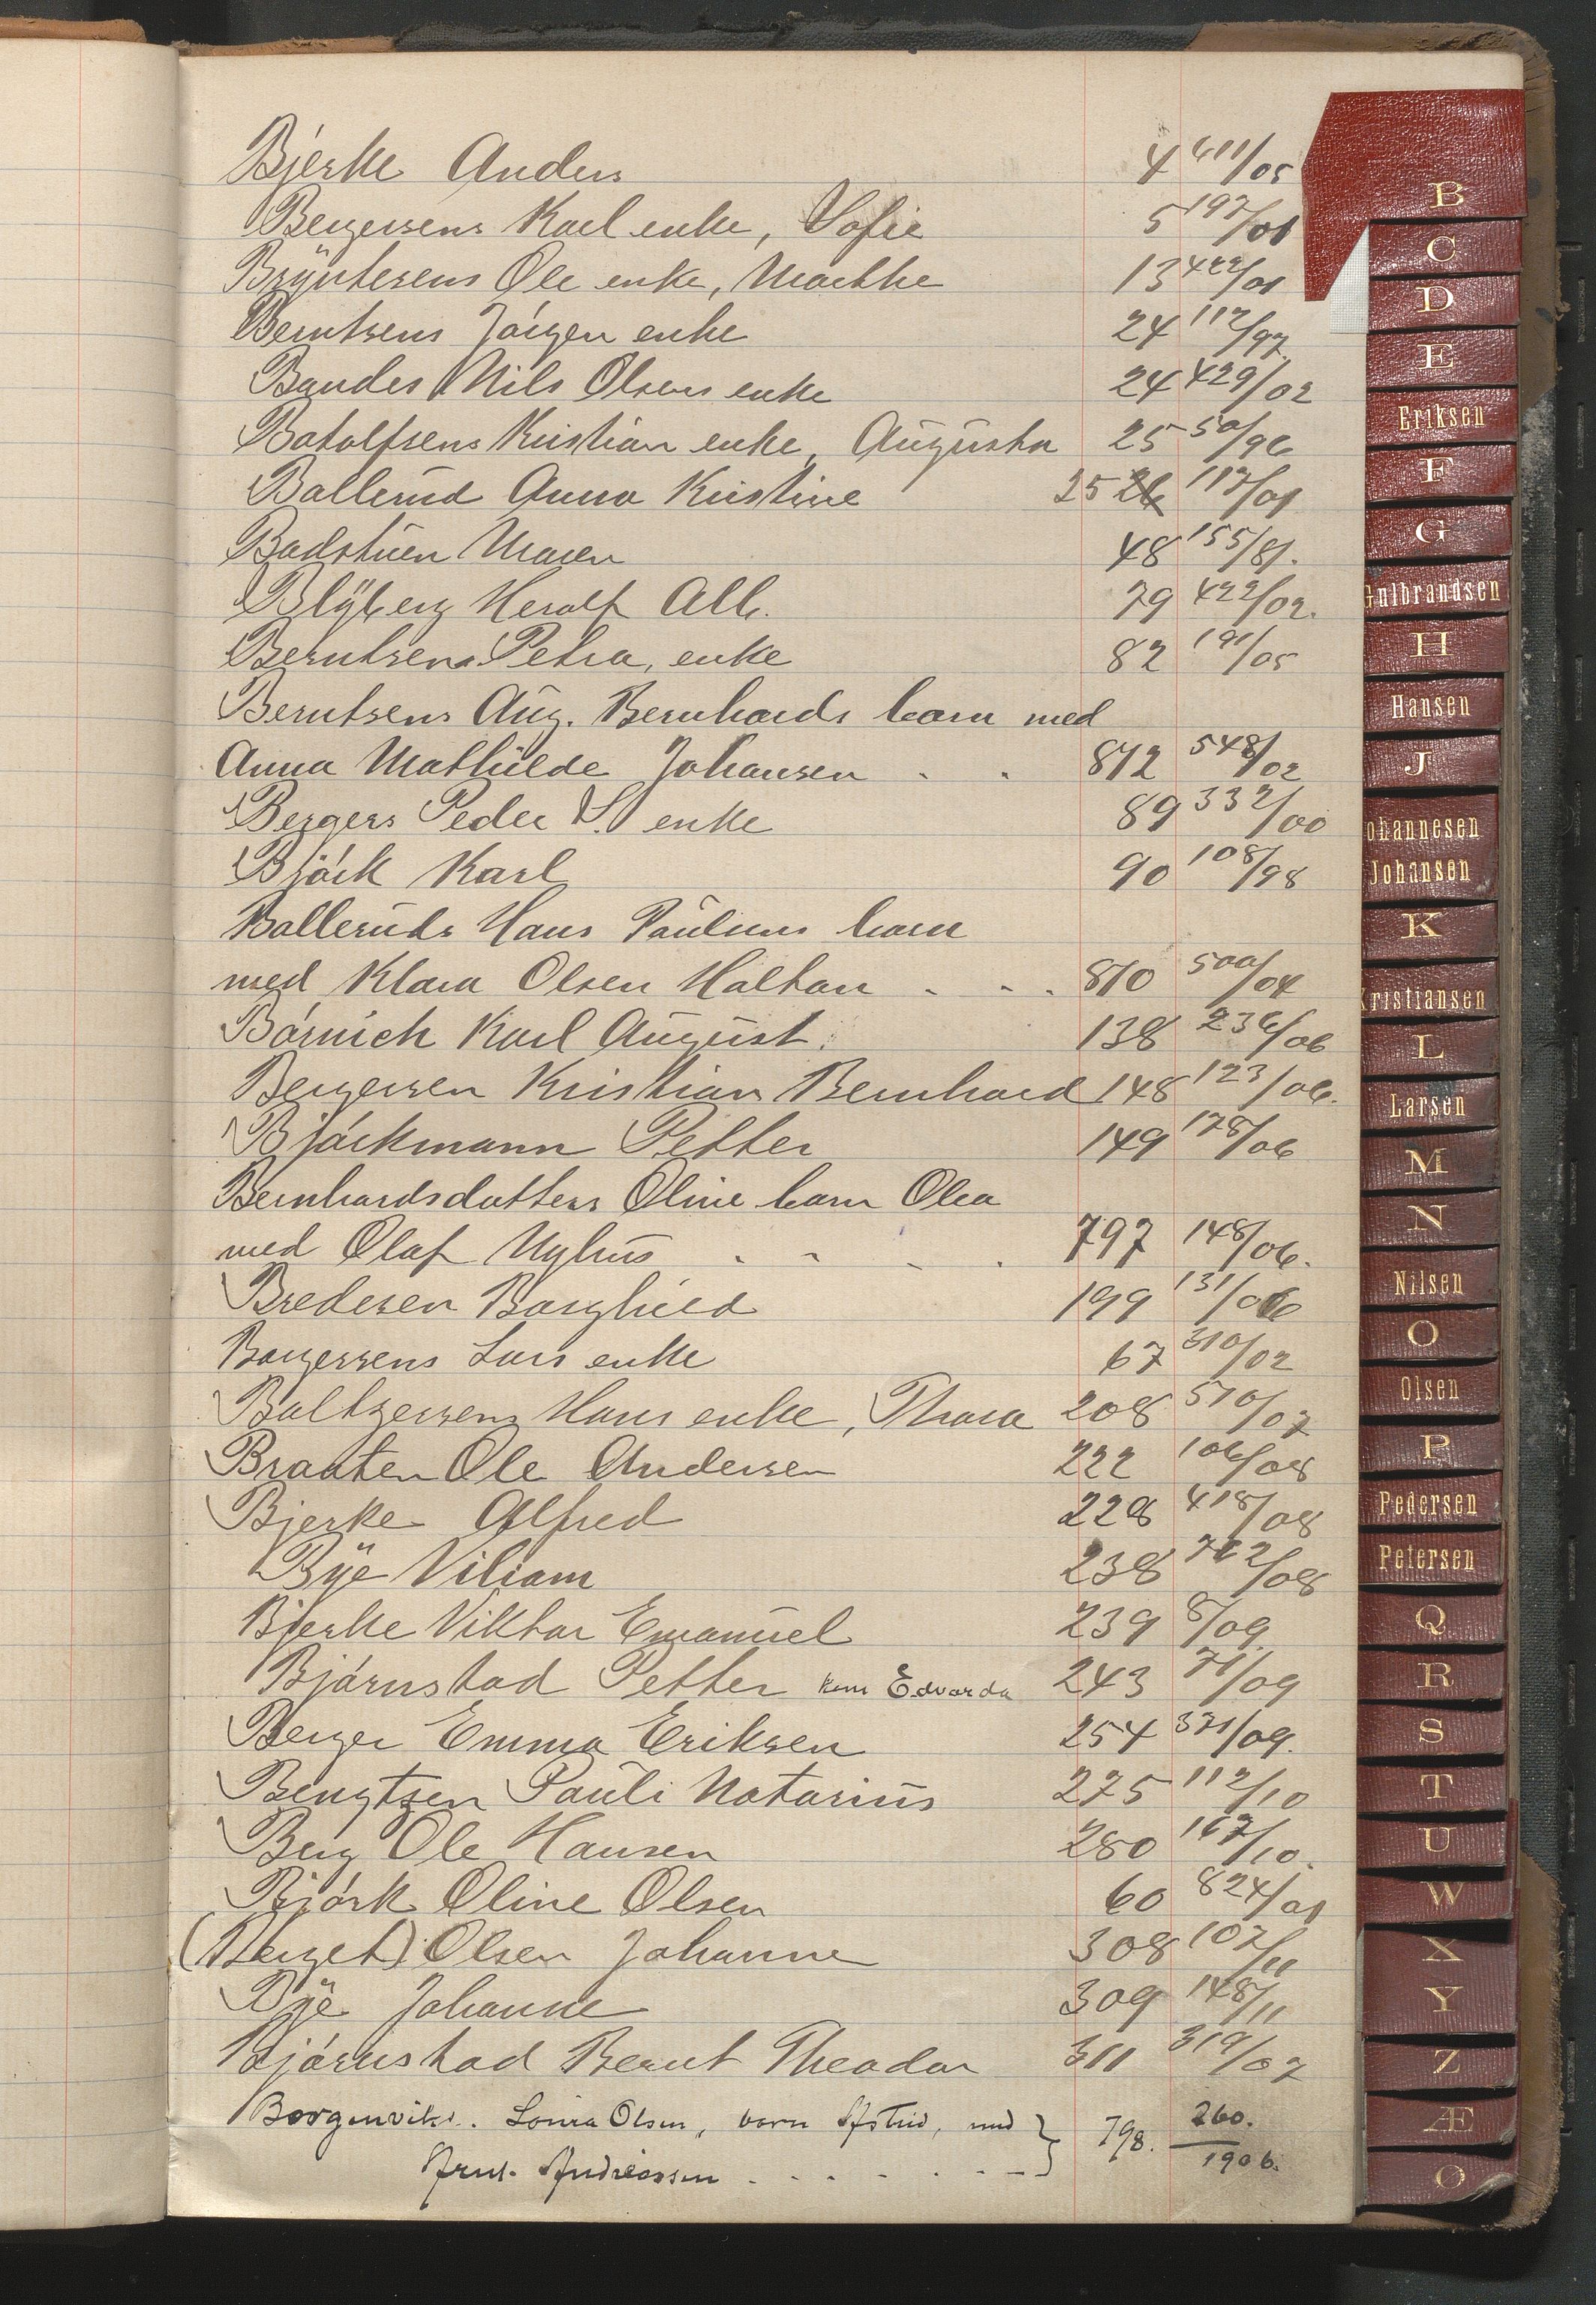 Bjerke Anders 4 611/05
Bergersens Karl enke, Sofie 5 197/01
Bryntesens Ole enke, Marthe 13 422/01
Berntsens Jörgen enke 24 112/97.
Bandes Nils Olsens enke 24 429/02
Botolfsens Kristian enke, Augusta 25 50/96
Ballerud Anna Kristine 25 26 117/01
Badstuen Maren 48 155/81.
Blÿberg Herolf Alb. 79 422/02.
Berntsens Petra, enke 82 191/05
Berntsens Aug. Bernhards barn med
Anna Mathilde Johansen . . 872 548/02
Bergers Peder S. enke 89 332/00
Björk Karl 90 108/98
Balleruds Hans Paulsens barn
med Klara Olsen Haltan . . . 870 500/04
Börnich Karl August. 138 236/06
Bergersen Kristian Bernhard 148 123/06.
Björkmann Petter 149 178/06
Bernhardsdatters Oline barn Olea
med Olaf Nyhus . . . . 797 148/06.
Bredesen Borghild 199 131/06
Borgersens Lars enke 67 310/02
Baltzersens Hans enke, Thora 208 570/07
Braaten Ole Andersen 222 106/08
Bjerke Alfred 228 418/08
Bÿe Viliam 238 762/08
Bjerke Viktor Emanuel 239 8/09.
Björnstad Petter kone Edvarda 243 71/09
Berger Emma Eriksen 254 371/09.
Bengtzen Pauli Notarius 275 112/10
Berg Ole Hansen 280 167/10.
Björk Oline Olsen 60 824/01
(Berget) Olsen Johanne 308 107/11
Bÿe Johanne 309 148/11
Björnstad Bernt Theodor 311 319/07
Borgenvik. Lovisa Olsen, barn Astrid, med } 798. 260.
Arnt. Andreassen . . . . . . . 1906.
B
C
D
E
Eriksen
F
G
Gulbrandsen
H
Hansen
J
Johannesen
Johansen
K
Kristiansen
L
Larsen
M
N
Nilsen
O
Olsen
P
Pedersen
Petersen
Q
R
S
T
U
W
X
Y
Z
Æ
Ø